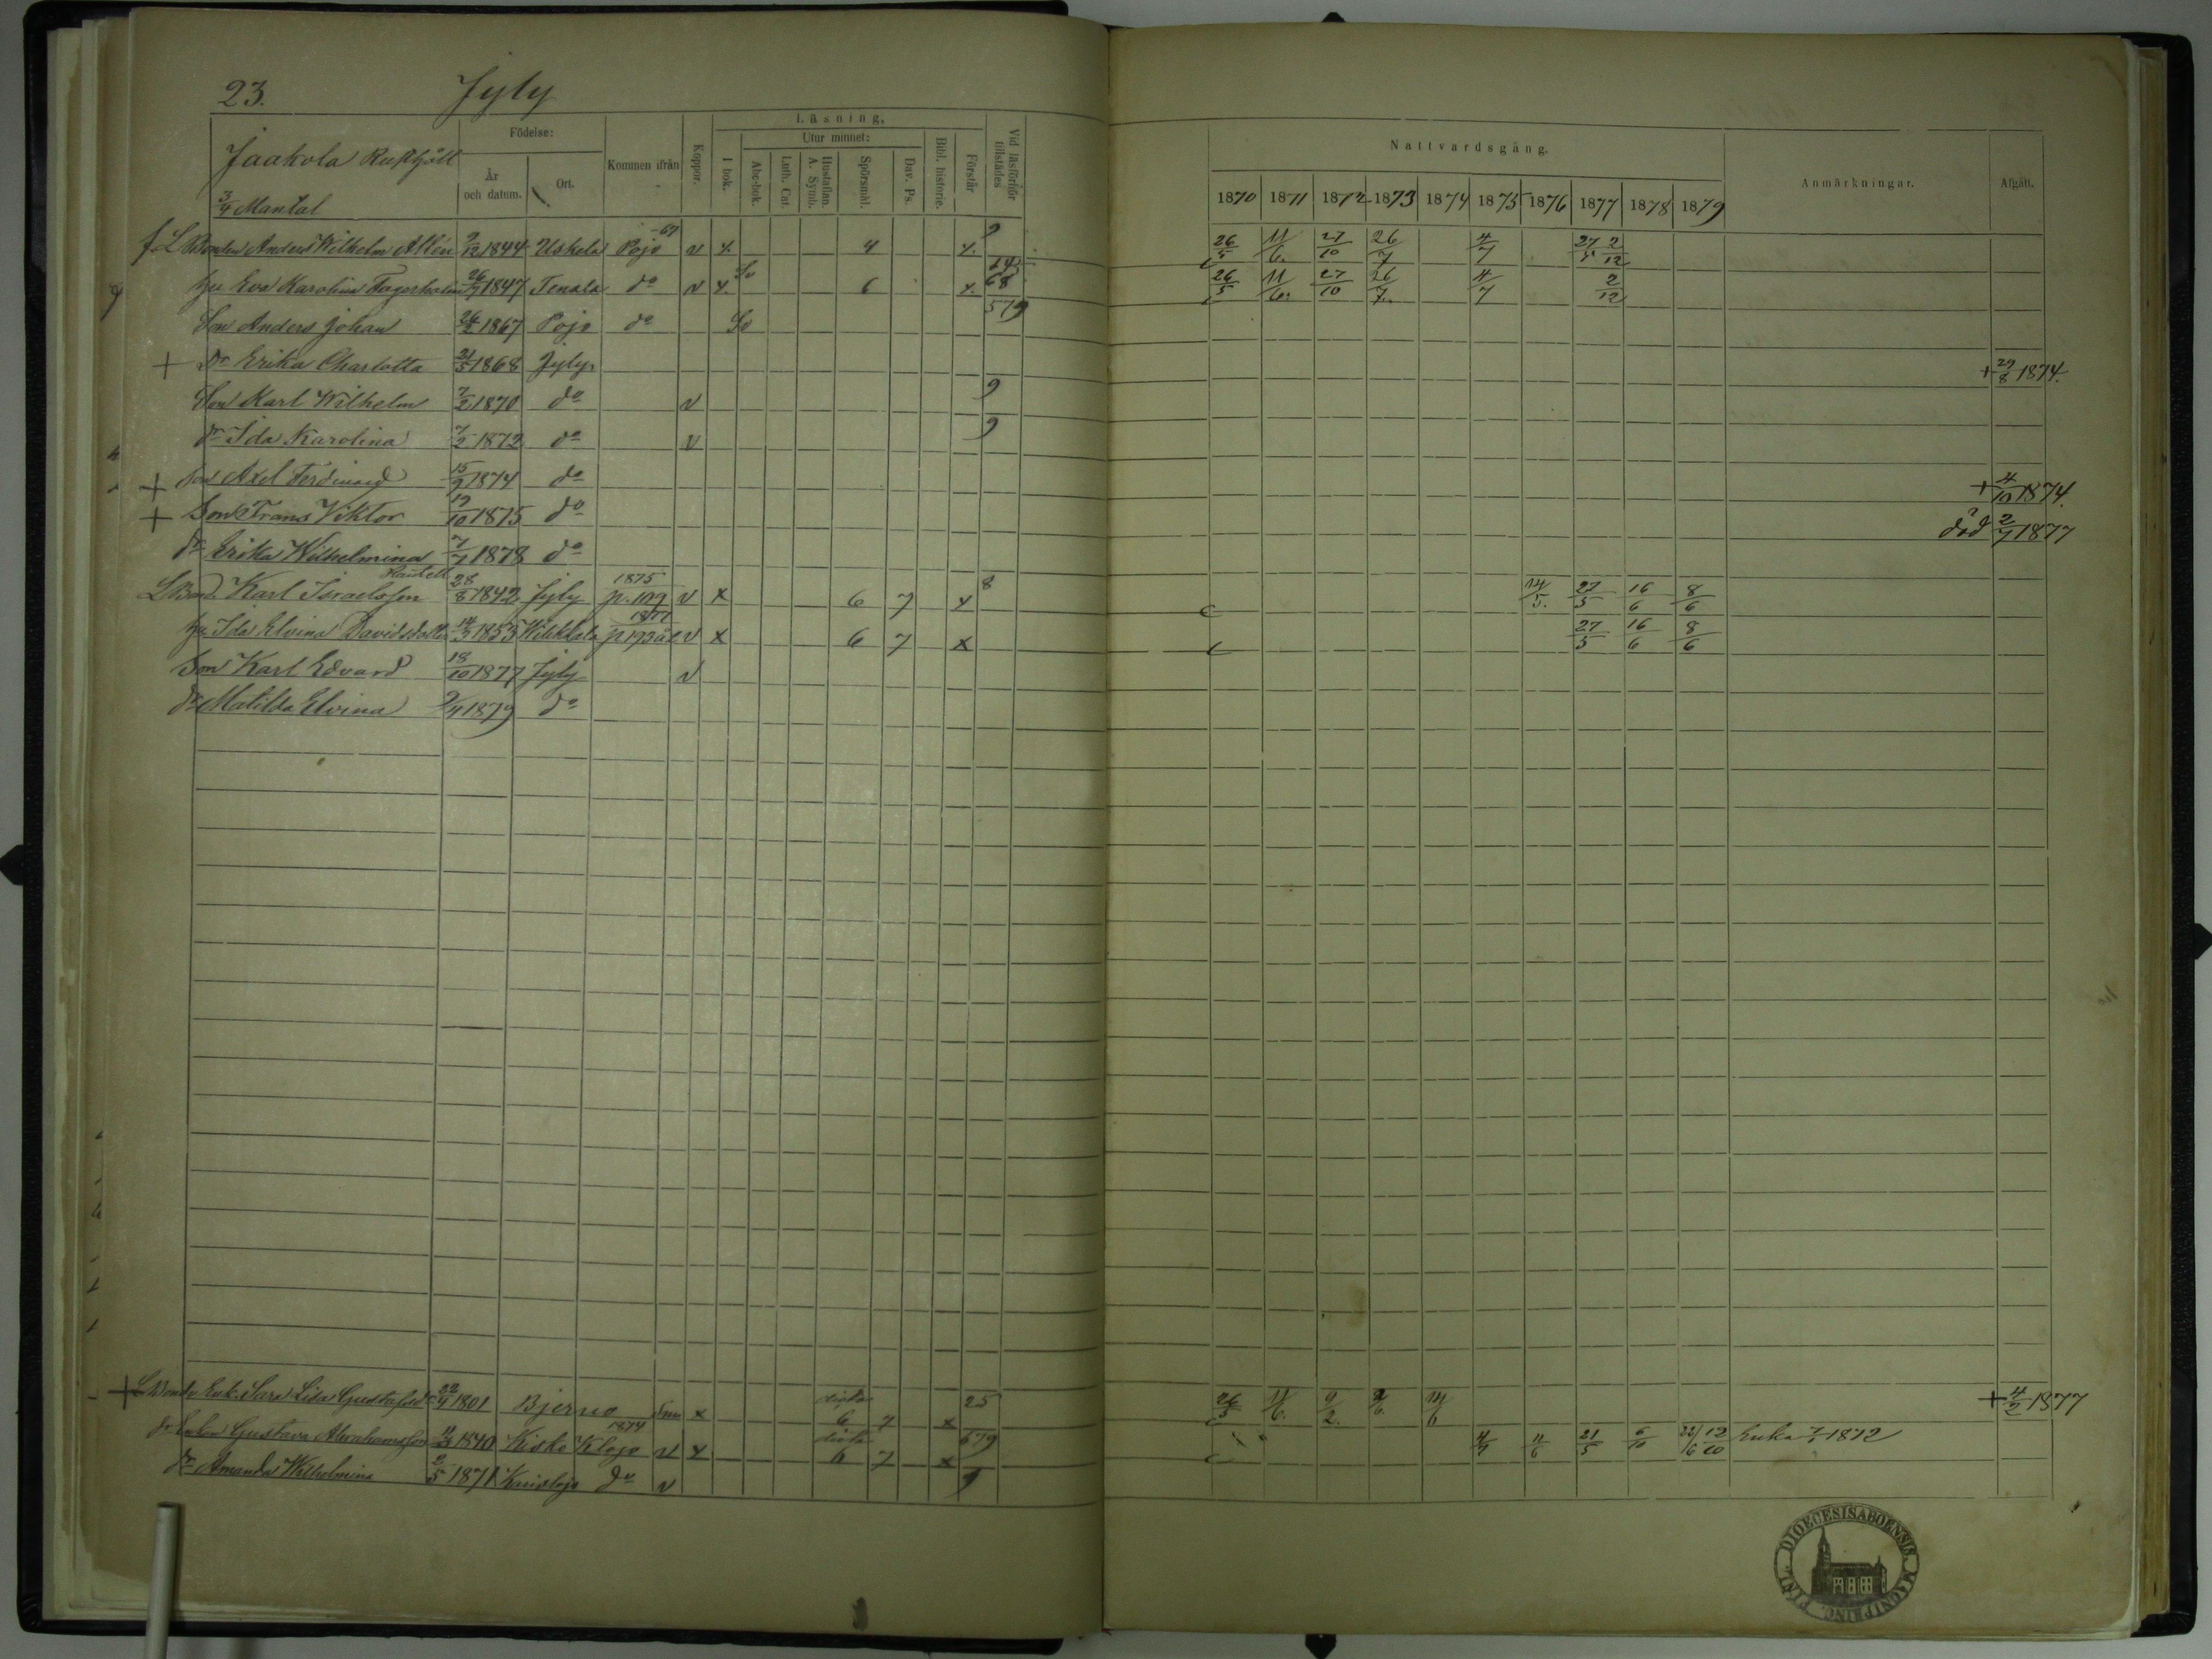 23. Jyly
Jaakola Rusthåll
3/4 Mantal
Födelse:
År och datum.
Ort.
Kommen ifrån
Koppor.
Läsning.
I bok.
Utur minnet:
Abc-bok.
Luth. Cat.
Hustaflan. A. Symb.
Spörsmål.
Dav. Ps.
Bibl. historie.
Förstår
Vid läsförhör tillstädes
Nattvardsgång.
1870 1871 1872 1873 1874 1875 1876 1877 1878 1879
Anmärkningar.
Afgått.
f. L Bonden Anders Wilhelm Allen 9/12 1844 Uskela Pojo -69 v x 4 x 9 26/5 11/6. 27/10 26/7 4/7 27/5 2/12
hu Eva Karolina Fagerholm 26/7 1847 Tenala do v x Sv 6 x 68 26/5 11/6. 27/10 26/7. 4/7 2/12
Son Anders Johan 1867 Pojo do Sv 579
+ Dr Erika Charlotta 21/5 1868 Jyly + 29/8 1874.
Son Karl Wilhelm 7/2 1870 do v 9
dr Ida Karolina 7/2 1872 do v 9
+ Son Axel Ferdinand 15/9 1874 do + 4/10 1874.
+ Son Frans Viktor 19/10 1875 do död 2/7 1877
dr Erika Wilhelmina 7/7 1878 do
L Bond. Karl Israelsson 28/8 1842 Jyly 1875 p. 109 v x 6 7 x 8 14/5. 27/5 16/6 8/6
hu Ida Elvina Davidsdotter 14/3 1855 1877 v x 6 7 x 27/5 16/6 8/6
Son Karl Edvard 18/10 1877 Jyly v
dr Matilda Elvina 9/4 1879 do
+ L Bonde Enk. Sara Lisa Gustafsd 22/4 1801 Bjerno x 6 7 x 25 26/5 11/6. 9/2. 14/6 + 4/2 1877
dr Enkan Gustava Abrahamsson 1840 Kisko 1874 Klojo v x 6 7 x 679 4/7 11/6 21/5 6/10 22/6 12/10 Enka 7/1 1872
dr Amanda Wilhelmina 2/5 1871 Karislojo do v 9
DIOECESIS ABOENSIS MAGNI PRINC. FINL.